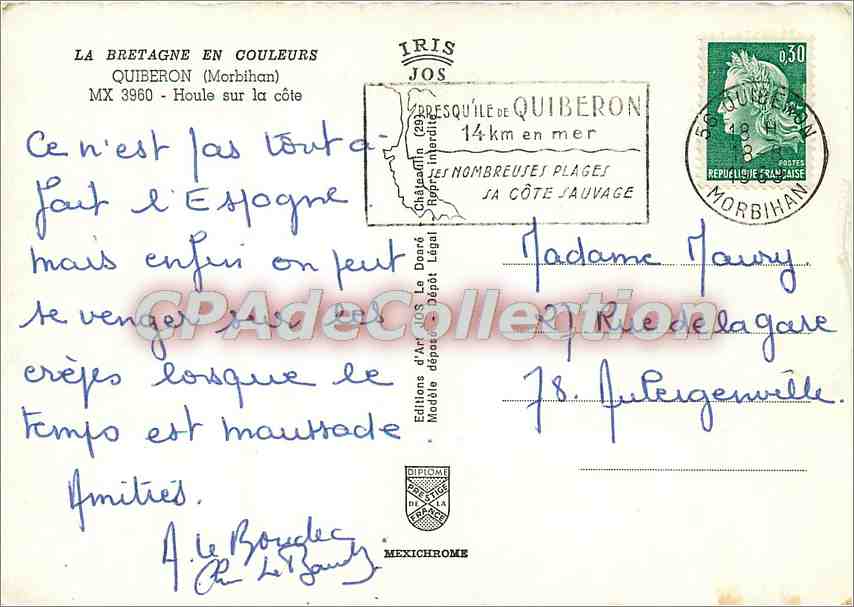 LA BRETAGNE EN COULEURS
QUIBERON (Morbihan)
MX 3960 - Houle sur la côte
IRIS
JOS
PRESQU'ÎLE DE QUIBERON
14 km en mer
SES NOMBREUSES PLAGES
SA CÔTE SAUVAGE
0,30
POSTES
REPUBLIQUE FRANÇAISE
56 QUIBERON
18 H
MORBIHAN
Ce n'est pas tout à-
fait l'Espagne
mais enfin on peut
se venger sur les
crêpes lorsque le
temps est maussade.
Amitiés.
A. Le Boudec
Editions d'Art JOS Le Doaré - Châteaulin (29)
Modèle déposé - Dépôt Légal - Repr. interdite
Madame Maury
27 Rue de la gare
78. Aubergenville.
CPAdeCollection
DIPLOME
PRESTIGE
DE LA
FRANCE
MEXICHROME